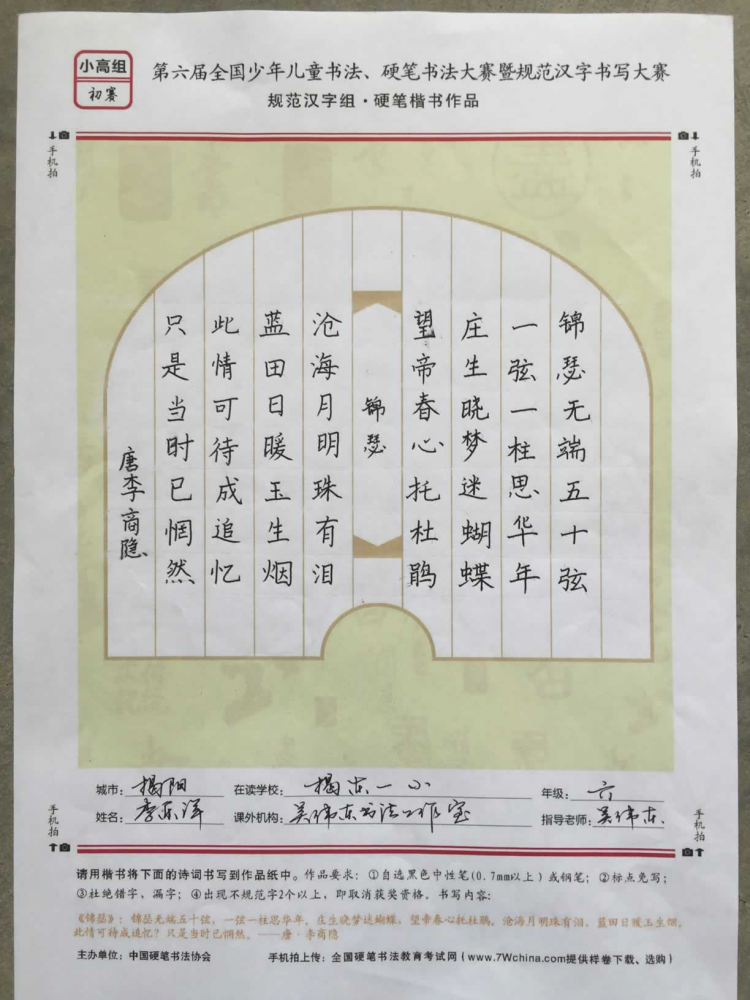 小高组
初赛
第六届全国少年儿童书法、硬笔书法大赛暨规范汉字书写大赛
规范汉字组·硬笔楷书作品
手机拍
手机拍
锦瑟无端五十弦
一弦一柱思华年
庄生晓梦迷蝴蝶
望帝春心托杜鹃
锦瑟
沧海月明珠有泪
蓝田日暖玉生烟
此情可待成追忆
只是当时已惘然
唐李商隐
城市：揭阳 在读学校：揭东一小 年级：六
姓名：李东洋 课外机构：吴伟东书法工作室 指导老师：吴伟东
手机拍
手机拍
请用楷书将下面的诗词书写到作品纸中。作品要求：①自选黑色中性笔(0.7mm以上)或钢笔；②标点免写；
③杜绝错字、漏字；④出现不规范字2个以上，即取消获奖资格。书写内容：
《锦瑟》：锦瑟无端五十弦，一弦一柱思华年。庄生晓梦迷蝴蝶，望帝春心托杜鹃。沧海月明珠有泪，蓝田日暖玉生烟。
此情可待成追忆？只是当时已惘然。——唐·李商隐
主办单位：中国硬笔书法协会 手机拍上传：全国硬笔书法教育考试网（www.7Wchina.com提供样卷下载、选购）